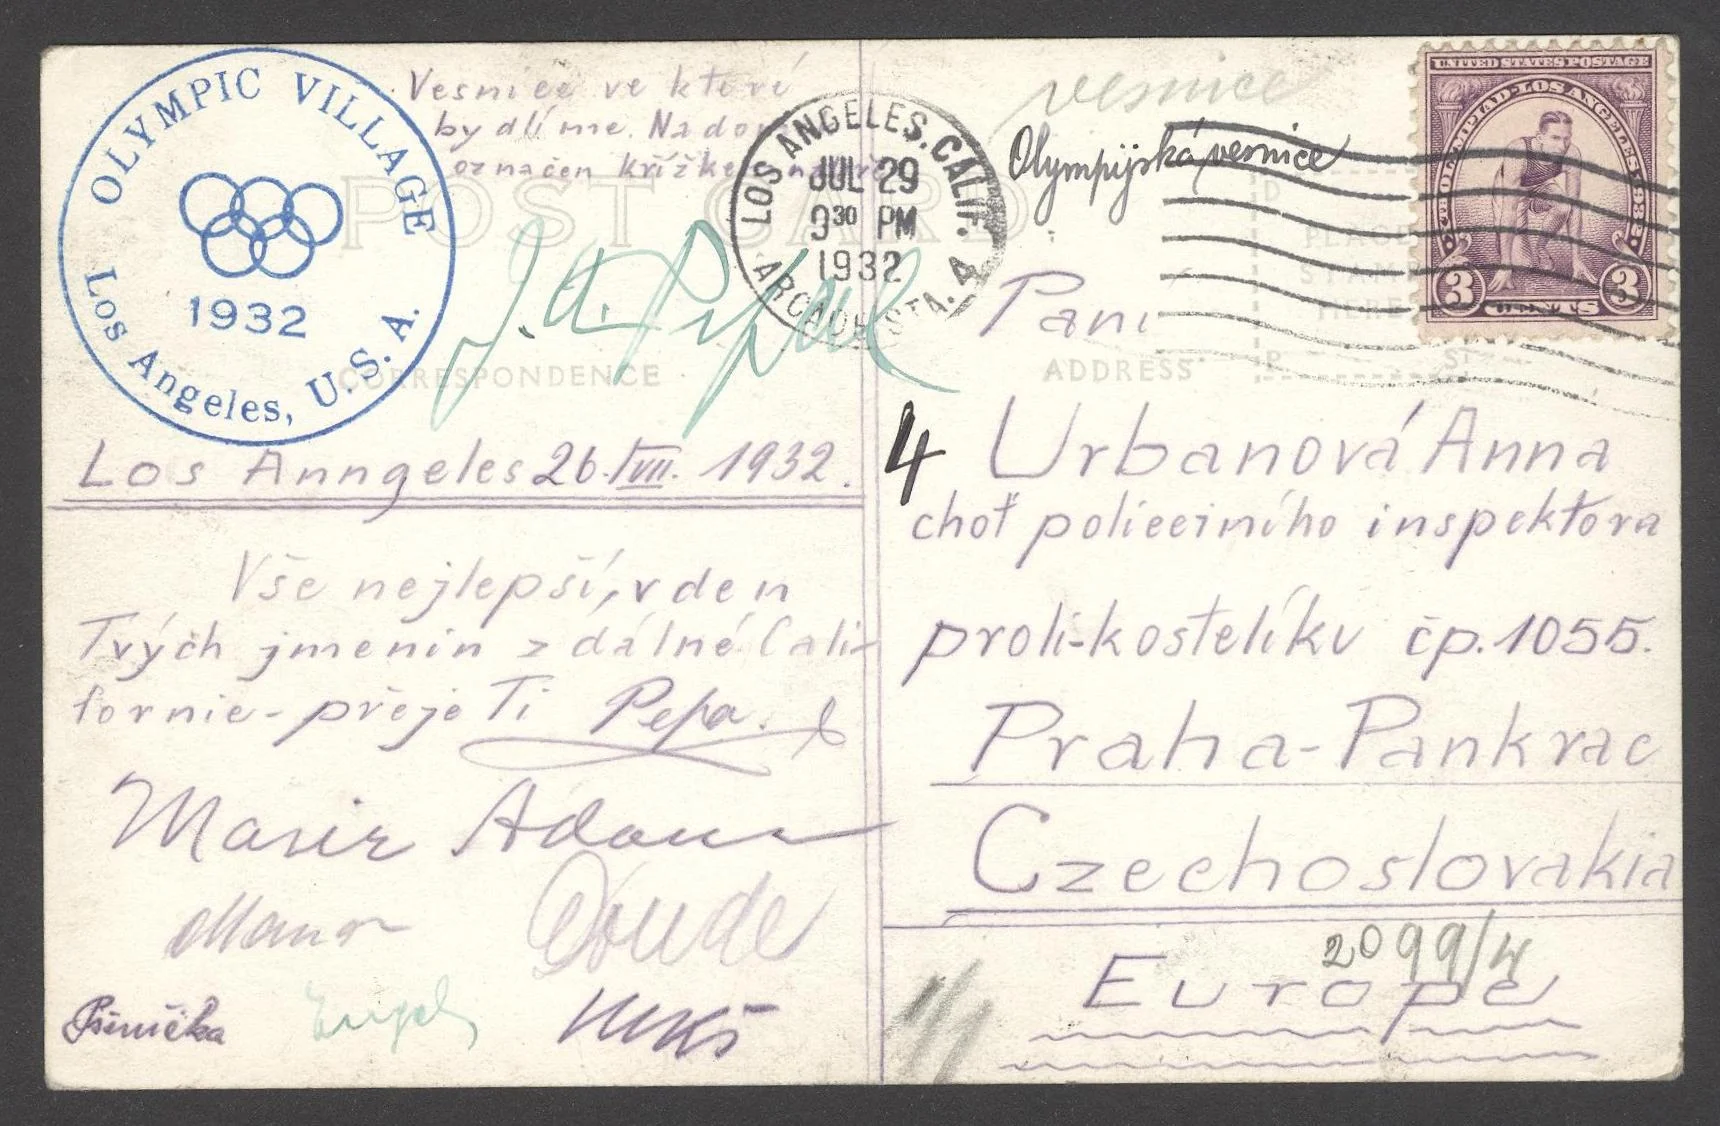 OLYMPIC VILLAGE
1932
Los Angeles, U.S.A.
Vesnice ve které
bydlíme. Na
označen křížke
POST CARD
CORRESPONDENCE
LOS ANGELES, CALIF.
JUL 29
9 30 PM
1932
ARCADE STA. 4
vesnice
Olympijská vesnice
UNITED STATES POSTAGE
OLYMPIAD-LOS ANGELES
3 CENTS 3
PLACE
STAMP
HERE
ADDRESS
Los Anngeles 26. VII. 1932.
Vše nejlepší, v den
Tvých jmenin z dálné Cali-
fornie - přeje Ti Pepa.
Douda
Pšenička
4
Paní
Urbanová Anna
choť policejního inspektora
proti-kostelíku čp. 1055.
Praha-Pankrac
Czechoslovakia
Europe
2099/4